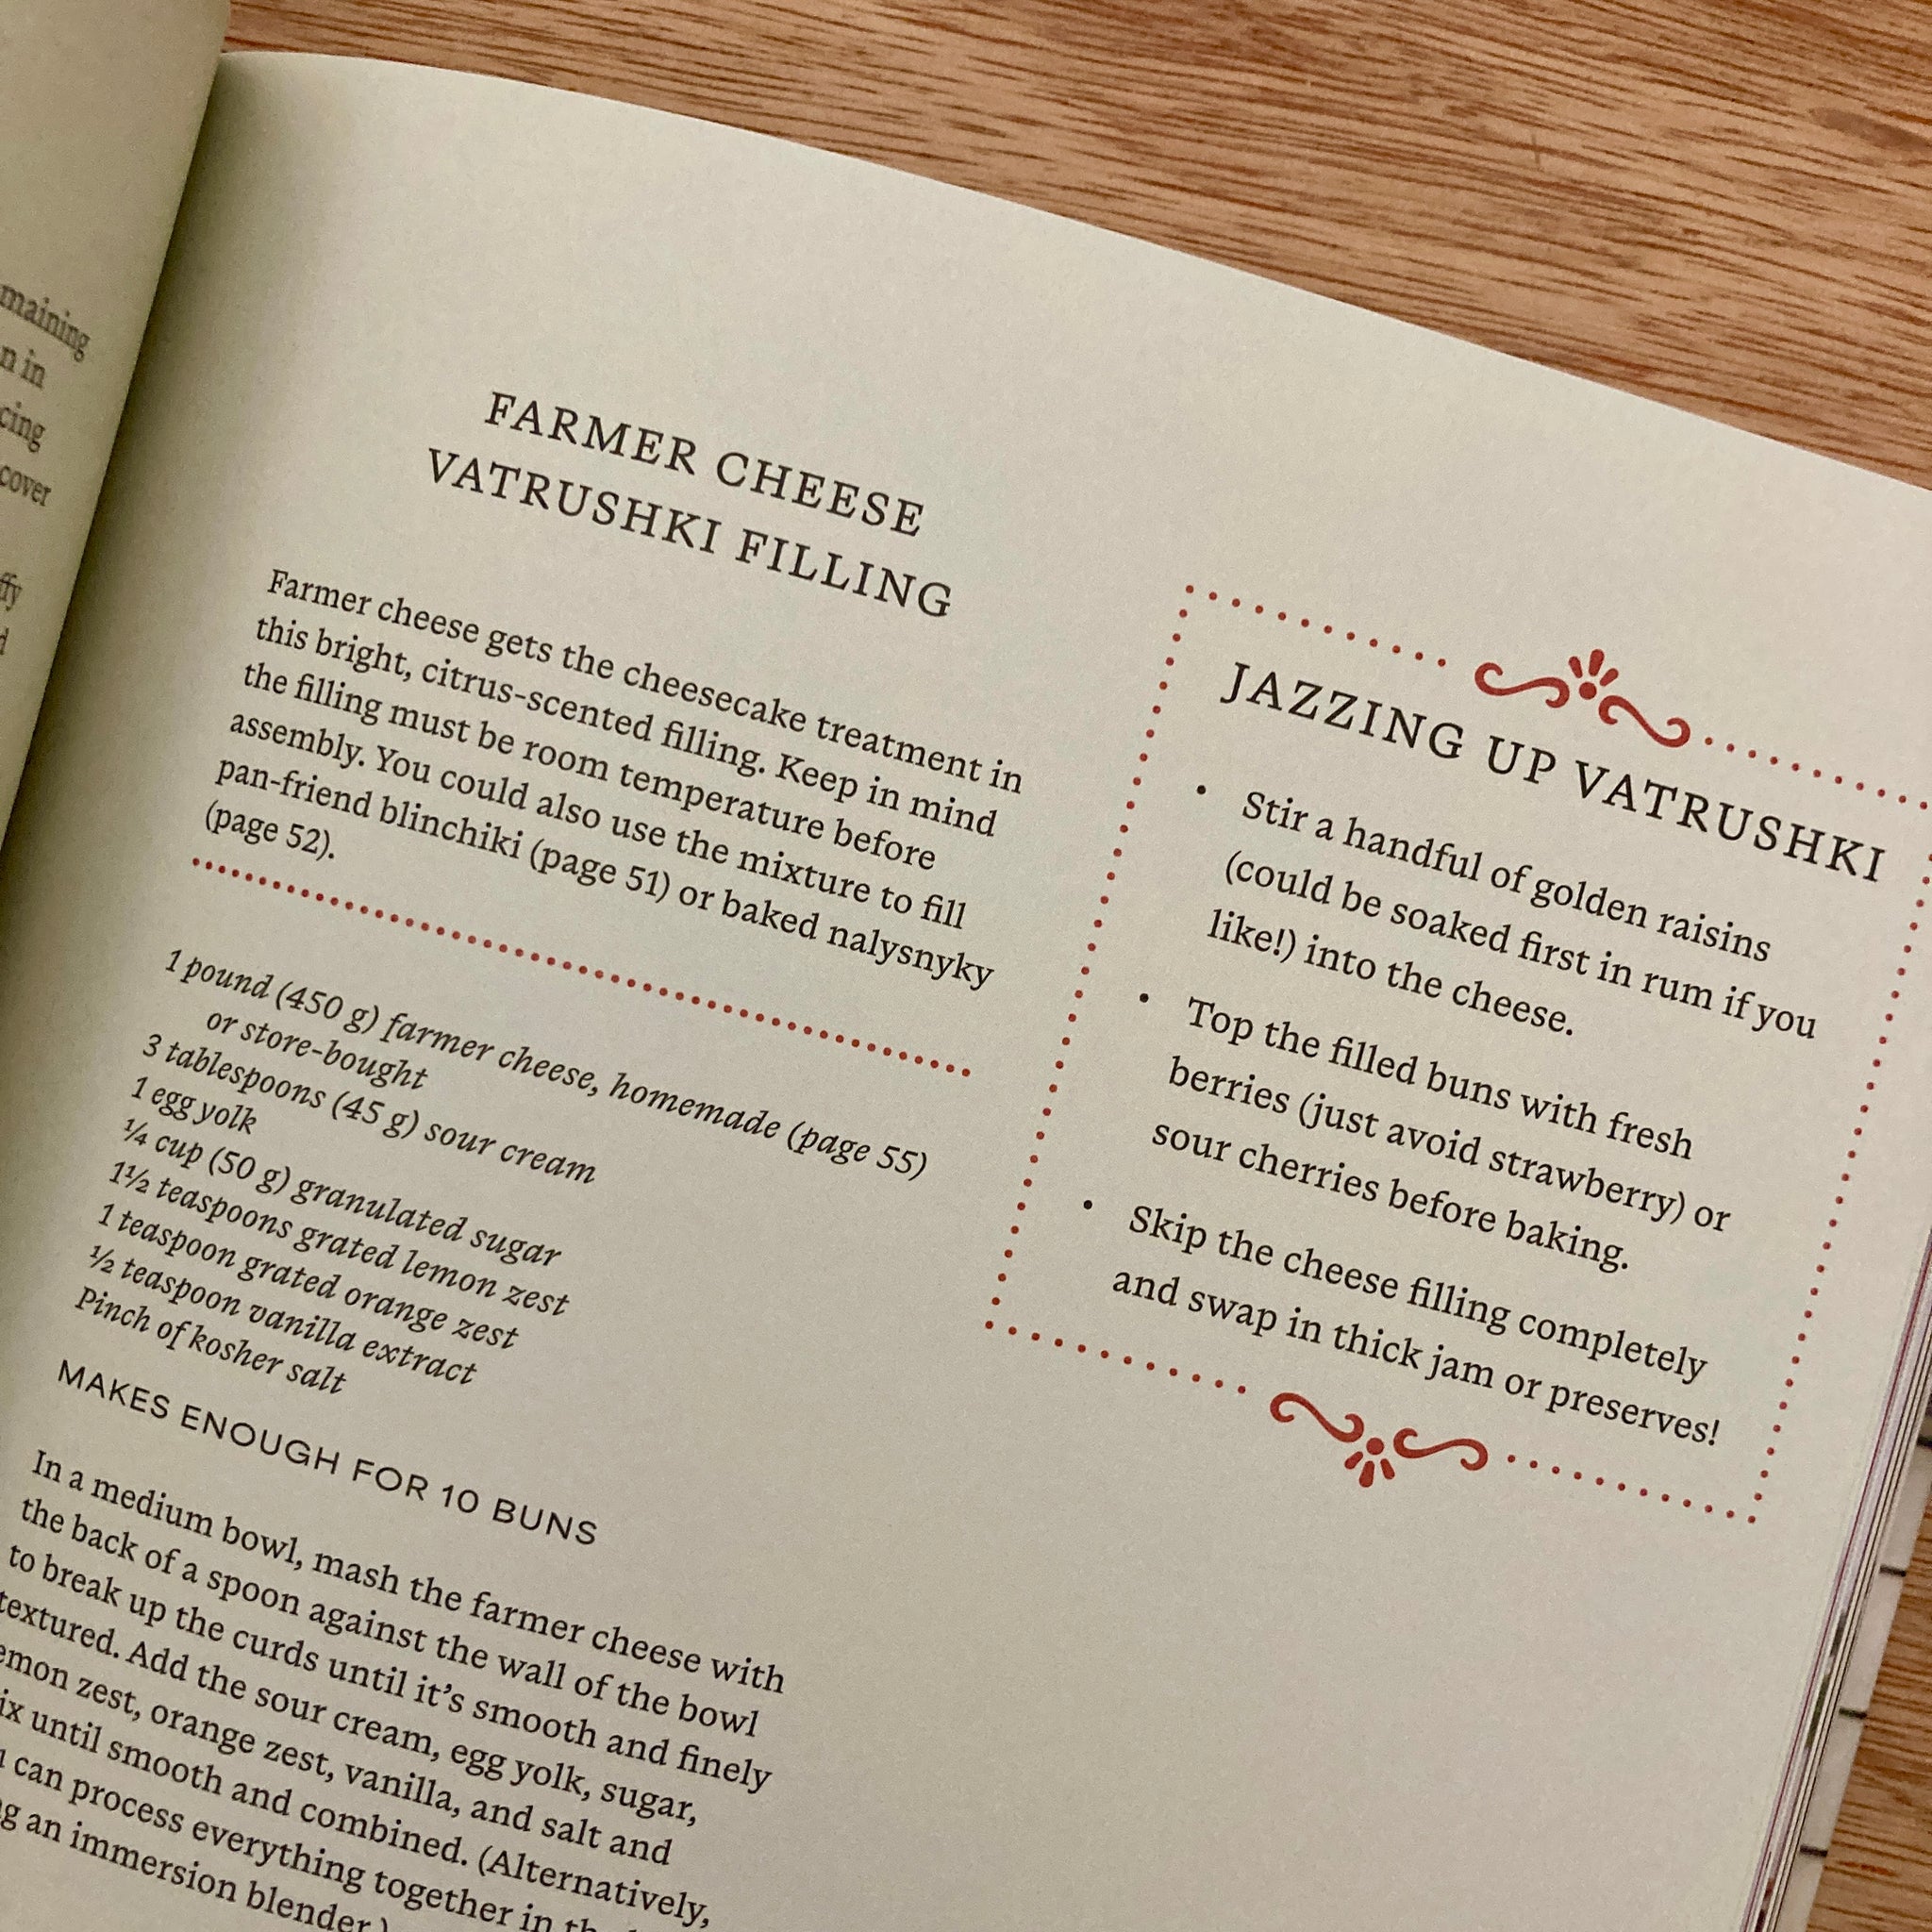 maining
n in
cing
cover
ffy
d
FARMER CHEESE
VATRUSHKI FILLING
Farmer cheese gets the cheesecake treatment in
this bright, citrus-scented filling. Keep in mind
the filling must be room temperature before
assembly. You could also use the mixture to fill
pan-friend blinchiki (page 51) or baked nalysnyky
(page 52).
1 pound (450 g) farmer cheese, homemade (page 55)
or store-bought
3 tablespoons (45 g) sour cream
1 egg yolk
¼ cup (50 g) granulated sugar
1½ teaspoons grated lemon zest
1 teaspoon grated orange zest
½ teaspoon vanilla extract
Pinch of kosher salt
MAKES ENOUGH FOR 10 BUNS
In a medium bowl, mash the farmer cheese with
the back of a spoon against the wall of the bowl
to break up the curds until it's smooth and finely
textured. Add the sour cream, egg yolk, sugar,
emon zest, orange zest, vanilla, and salt and
ix until smooth and combined. (Alternatively,
can process everything together in
g an immersion blender.)
JAZZING UP VATRUSHKI
• Stir a handful of golden raisins
(could be soaked first in rum if you
like!) into the cheese.
• Top the filled buns with fresh
berries (just avoid strawberry) or
sour cherries before baking.
• Skip the cheese filling completely
and swap in thick jam or preserves!